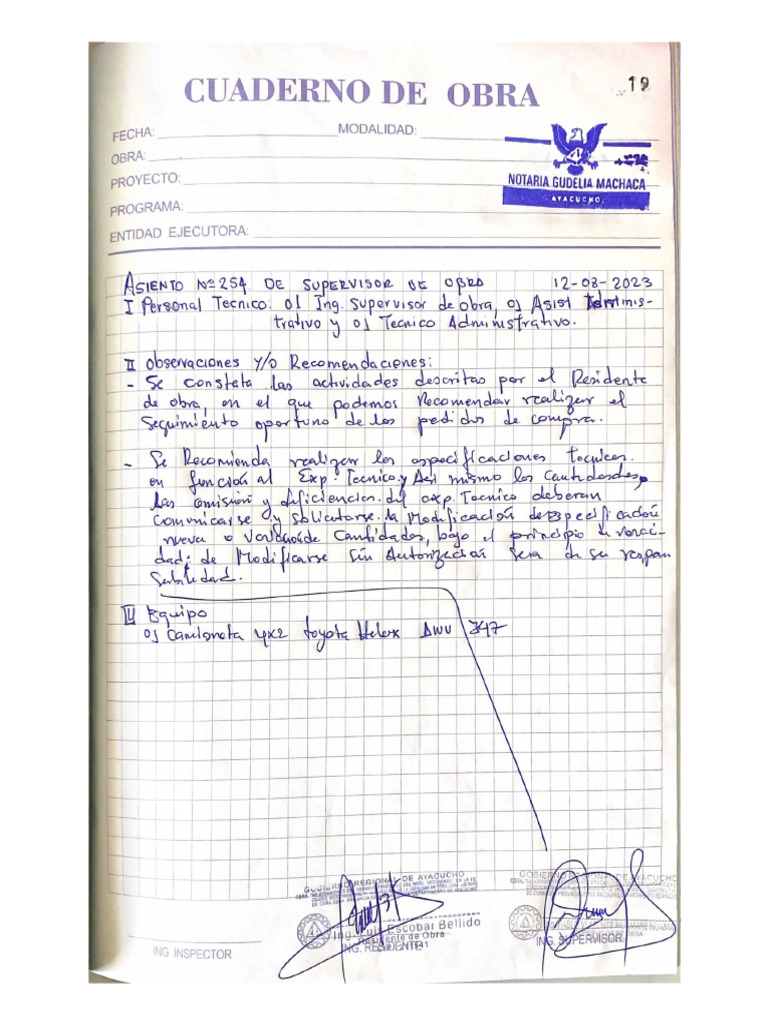 19
CUADERNO DE OBRA
FECHA: MODALIDAD:
OBRA:
PROYECTO:
PROGRAMA:
ENTIDAD EJECUTORA:
NOTARIA GUDELIA MACHACA
AYACUCHO
ASIENTO Nº 254 DE SUPERVISOR DE OBRA 12-08-2023
I Personal Tecnico: 01 Ing. Supervisor de obra, 01 Asist
trativo y 01 Tecnico Administrativo.
II Observaciones y/o Recomendaciones:
- Se constata las actividades descritas por el Residente
de obra, en el que podemos Recomendar realizar el
Seguimiento oportuno de los pedidos de compra.
- Se Recomienda realizar las especificaciones tecnicas.
en función al Exp. Tecnico y Asi mismo las Cantidades,
Las omisión y deficiencias del exp. Tecnico deberan
Comunicarse y solicitarse la Modificación de Especificación
nueva o Cantidades, bajo el principio de veraci-
dad; de Modificarse Sin Autorización Sera de su respon
sabilidad.
Equipo
01 Camioneta 4x2 toyota Helux 747
GOBIERNO REGIONAL DE AYACUCHO
Ing. Luis Escobar Bellido
Residente de Obra
ING. RESIDENTE
GOBIERNO REGIONAL DE AYACUCHO
ING. SUPERVISOR
ING INSPECTOR